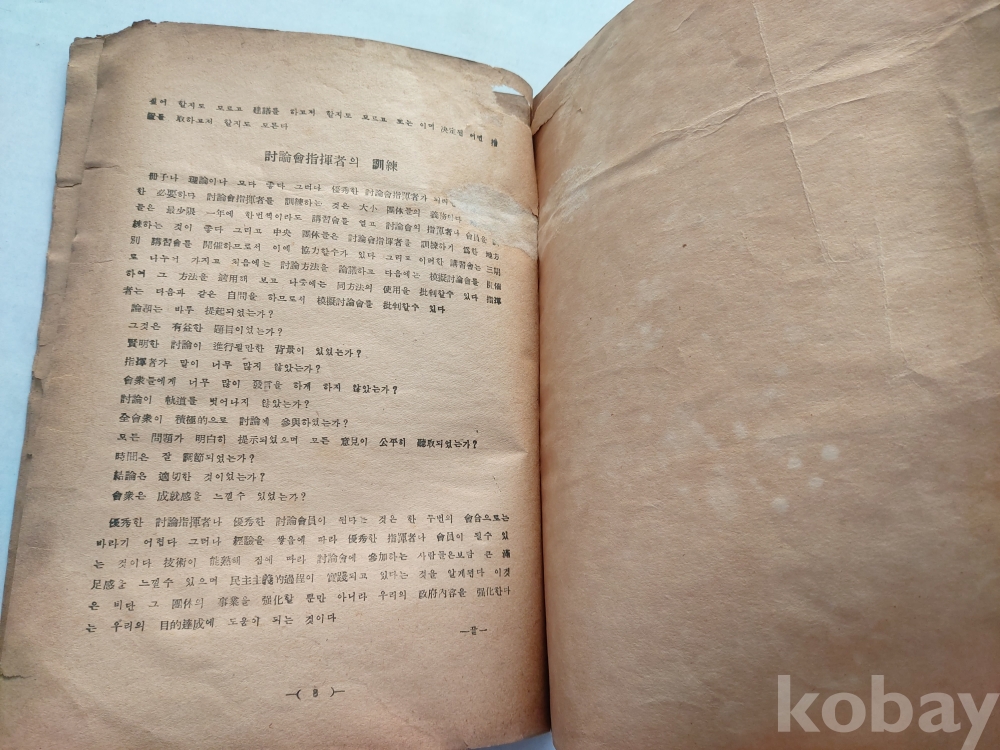 하여 할지도 모르고 建議를 하고저 할지도 모르고 또는 이미 決定된 어떤
를 取하고저 할지도 모른다
討論會指揮者의 訓練
冊子나 理論이나 모다 좋다 그러나 優秀한 討論會指揮者가 되려면
한 必要하다 討論會指揮者를 訓練하는 것은 大小 團体들의 義務이다
들은 最少限 一年에 한번씩이라도 講習會를 열고 討論會의 指揮者나 會員을
練하는 것이 좋다 그리고 中央 團体들은 討論會指揮者을 訓練하기 爲한 地方
別 講習會를 開催하므로서 이에 協力할수가 있다 그리고 이러한 講習會는 三期
로 나누어 가지고 처음에는 討論方法을 論議하고 다음에는 模擬討論會를 開催
하여 그 方法을 適用해 보고 나중에는 同方法의 使用을 批判할수 있다 指揮
者는 다음과 같은 自問을 하므로서 模擬討論會를 批判할수 있다
論題는 바루 提起되었는가?
그것은 有益한 題目이었는가?
賢明한 討論이 進行될만한 背景이 있었는가?
指揮者가 말이 너무 많지 않았는가?
會衆들에게 너무 많이 發言을 하게 하지 않았는가?
討論이 軌道를 벗어나지 않았는가?
全會衆이 積極的으로 討論에 參與하였는가?
모든 問題가 明白히 提示되었으며 모든 意見이 公平히 聽取되었는가?
時間은 잘 調節되었는가?
結論은 適切한 것이었는가?
會衆은 成就感을 느낄수 있었는가?
優秀한 討論指揮者나 優秀한 討論會員이 된다는 것은 한 두번의 會合으로는
바라기 어렵다 그러나 經驗을 쌓음에 따라 優秀한 指揮者나 會員이 될수 있
는 것이다 技術이 能熟해 짐에 따라 討論會에 參加하는 사람들은보담 큰 滿
足感을 느낄수 있으며 民主主義的過程이 實踐되고 있다는 것을 알게된다 이것
은 비단 그 團体의 事業을 强化할 뿐만 아니라 우리의 政府內容을 强化한다
는 우리의 目的達成에 도움이 되는 것이다
—끝—
—( 8 )—
kobay